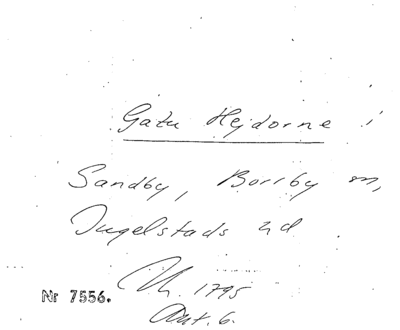 Gatu Hejdorne i
Sandby, Borrby sn,
Ingelstads hd
Nr 7556.
1795
Ant. 6.